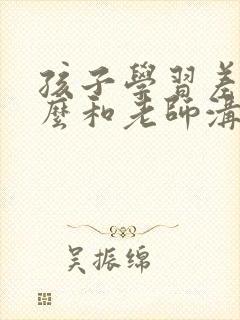 孩子學習差
麼和老師溝
吴振绵